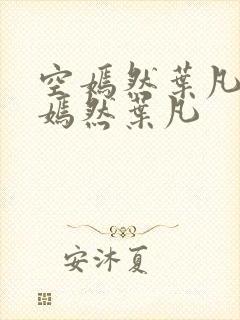 空嫣然葉凡
嫣然葉凡
安沐夏